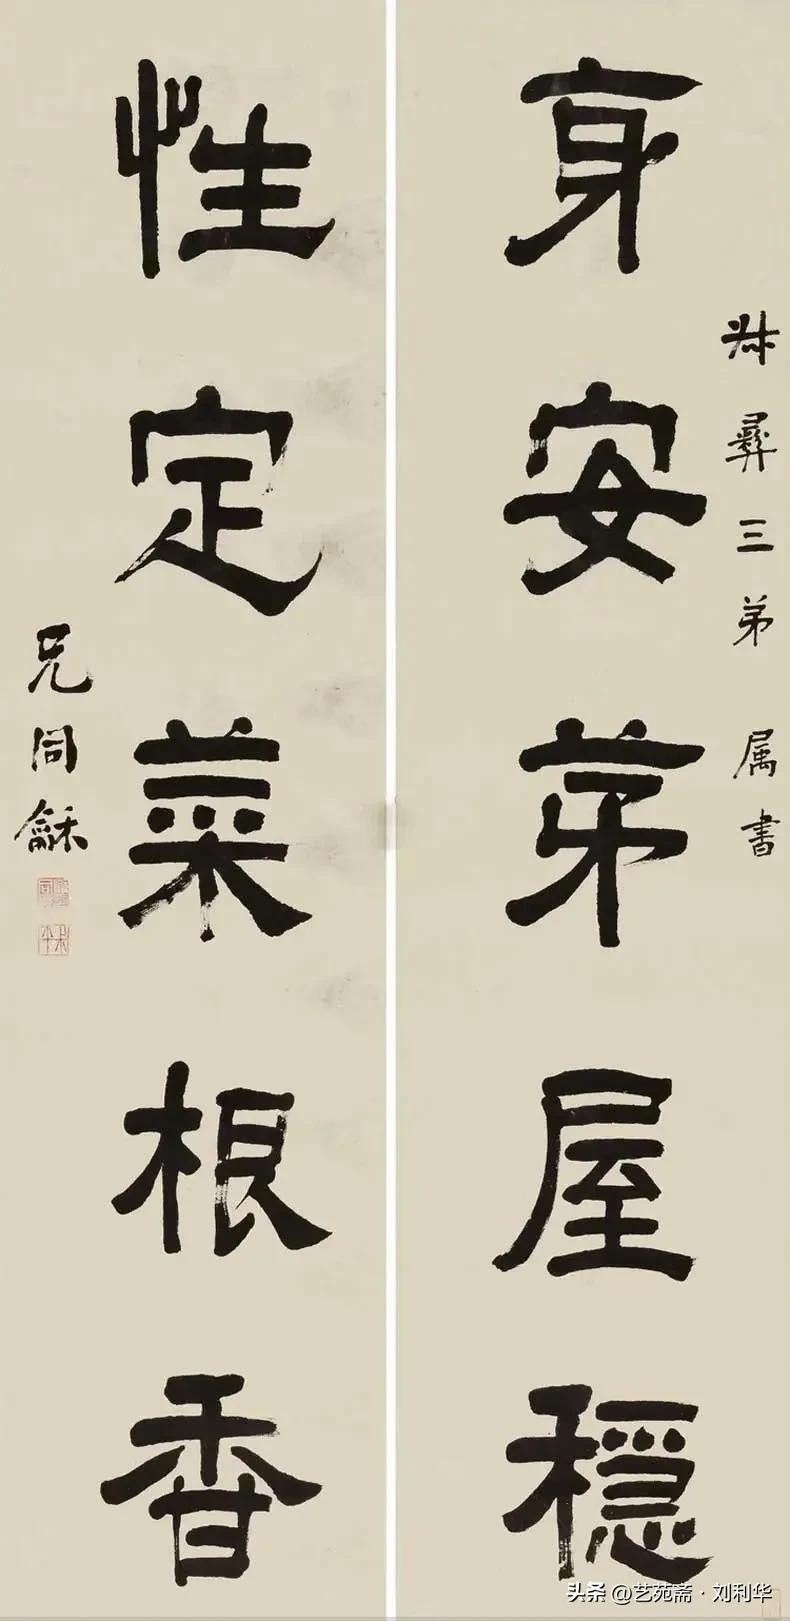 叔彝三弟 属書
身安茅屋穩
性定菜根香
兄同龢
头条 @艺苑斋·刘利华